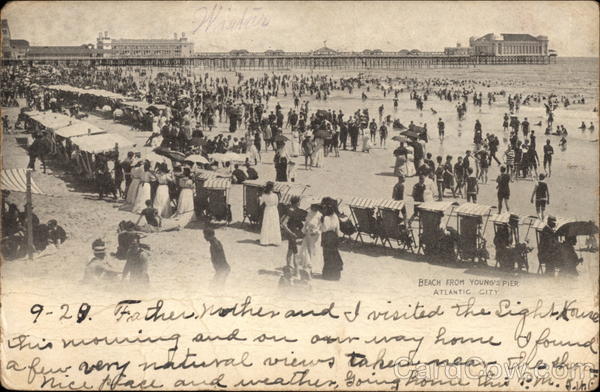 BEACH FROM YOUNG'S PIER
ATLANTIC CITY
9-29. Father, Mother and I visited the Light House
this morning and on our way home I found
a few very natural views taken near the
Nice place and weather, Going home this P.M.
CardCow.com